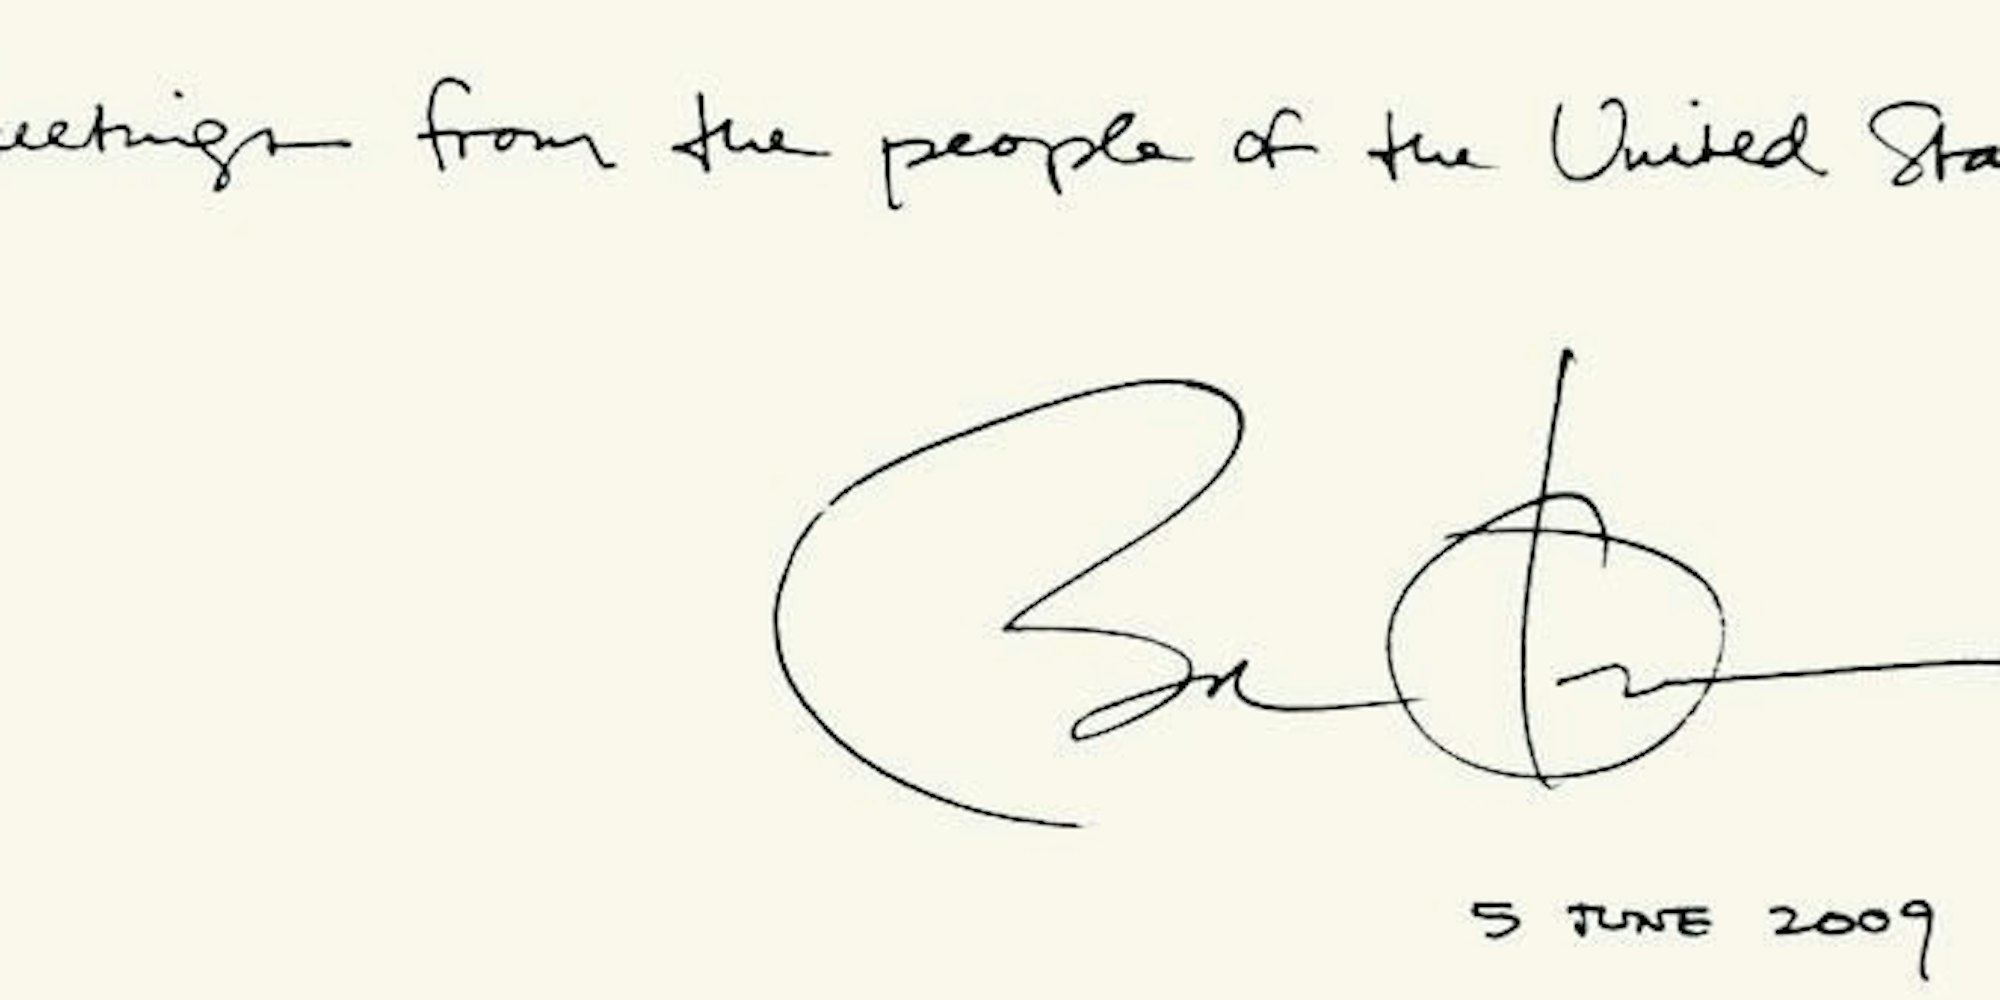 eetings from the people of the United Sta
5 JUNE 2009